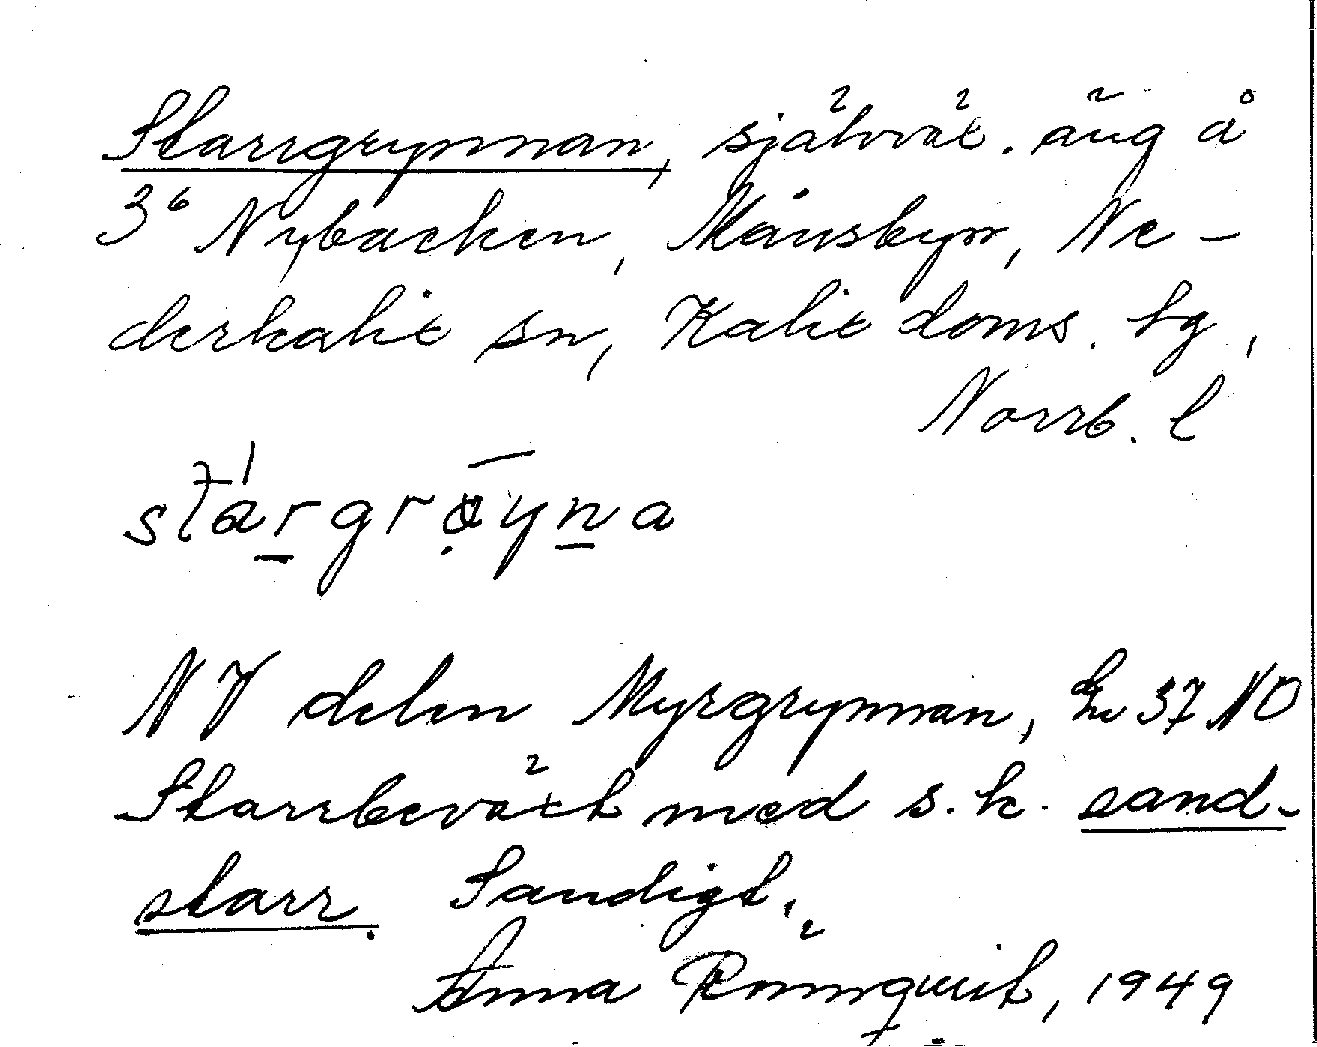 Starrgrynnan, självväx. äng å
3⁶ Nybacken, Månsbyn, Ne-
derkalix sn, Kalix doms. lg,
Norrb. l
stárgrø̣̄yna
NV delen Myrgrynnan, 37 NO
Starrbeväxt med s.k. sand-
starr. Sandigt.
Anna Rönnquist, 1949